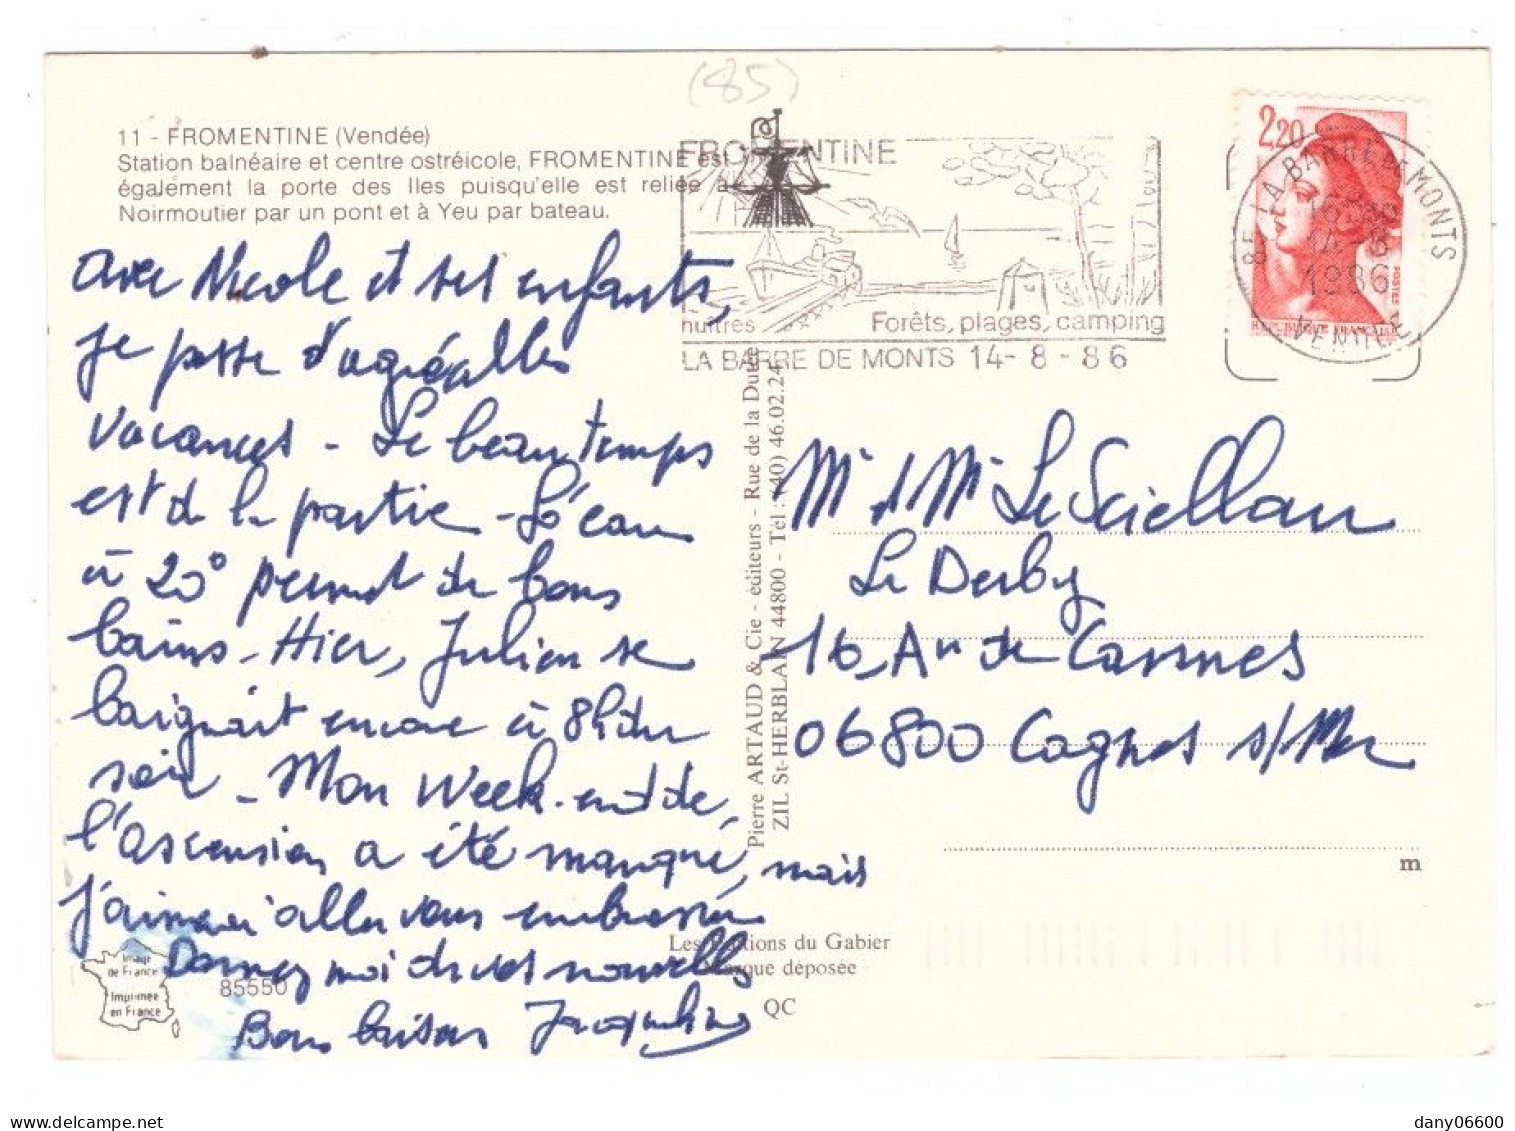 (85)
11 - FROMENTINE (Vendée)
Station balnéaire et centre ostréicole, FROMENTINE est
également la porte des Iles puisqu'elle est reliée à
Noirmoutier par un pont et à Yeu par bateau.
avec Nicole et ses enfants,
je passe d'agréables
vacances - Le beau temps
est de la partie - L'eau
à 20° permet de bons
bains - Hier, Julien se
baignait encore à 8h du
soir - Mon Week-end de
l'Ascension a été manqué, mais
j'aimerai aller vous embrasser
Donnez moi de vos nouvelles
Bons baisers Jacqueline
Image
de France
Imprimée
en France
85550
FROMENTINE
huîtres
Forêts, plages, camping
LA BARRE DE MONTS 14-8-86
2,20
POSTES
REPUBLIQUE FRANCAISE
85 LA BARRE DE MONTS
14-8
1986
VENDEE
Pierre ARTAUD & Cie - éditeurs - Rue de la Dutée
ZIL St-HERBLAIN 44800 - Tél : (40) 46.02.24
Mr et Me Le Sciellour
Le Derby
16, Av de Cannes
06800 Cagnes s/Mer
m
Les Editions du Gabier
Marque déposée
QC
dany06600